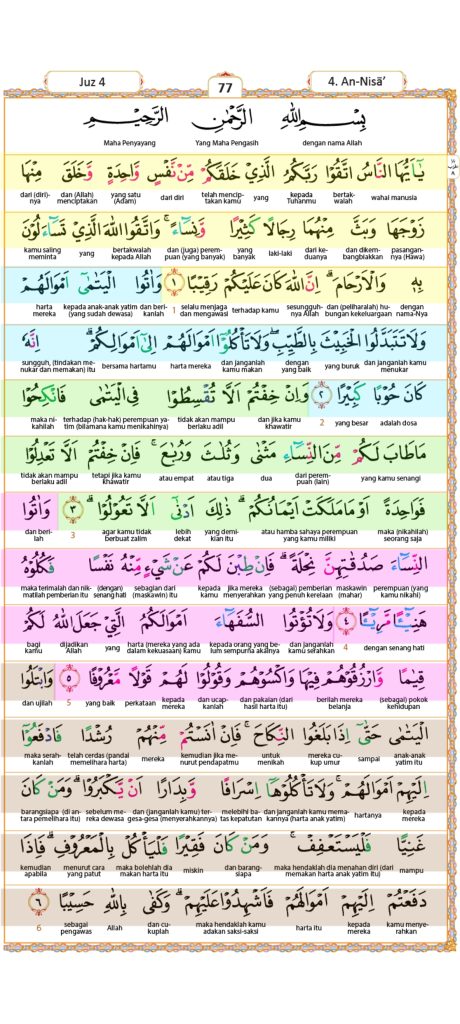 Juz 4
77
4. An-Nisā’
بِسْمِ اللّٰهِ الرَّحْمٰنِ الرَّحِيْمِ
Maha Penyayang Yang Maha Pengasih dengan nama Allah
يٰٓاَيُّهَا النَّاسُ اتَّقُوْا رَبَّكُمُ الَّذِيْ خَلَقَكُمْ مِّنْ نَّفْسٍ وَّاحِدَةٍ وَّخَلَقَ مِنْهَا
dari (diri)- dan (Allah) yang satu dari diri telah mencip- yang kepada bertak- wahai manusia
nya menciptakan (Adam) takan kamu Tuhanmu walah
زَوْجَهَا وَبَثَّ مِنْهُمَا رِجَالًا كَثِيْرًا وَّنِسَاۤءً ۚ وَاتَّقُوا اللّٰهَ الَّذِيْ تَسَاۤءَلُوْنَ
kamu saling yang bertakwalah dan (juga) perem- yang laki-laki dari ke- dan dikem- pasangan-
meminta kepada Allah puan (yang banyak) banyak duanya bangbiakkan nya (Hawa)
بِهٖ وَالْاَرْحَامَ ۗ اِنَّ اللّٰهَ كَانَ عَلَيْكُمْ رَقِيْبًا ١ وَاٰتُوا الْيَتٰمٰٓى اَمْوَالَهُمْ
harta kepada anak-anak yatim dan beri- 1 selalu menjaga terhadap kamu sesungguh- dan (peliharalah) hu- dengan
mereka (yang sudah dewasa) kanlah dan mengawasi nya Allah bungan kekeluargaan nama-Nya
وَلَا تَتَبَدَّلُوا الْخَبِيْثَ بِالطَّيِّبِ ۖ وَلَا تَأْكُلُوْٓا اَمْوَالَهُمْ اِلٰٓى اَمْوَالِكُمْ ۗ اِنَّهٗ
sungguh, (tindakan me- bersama hartamu harta mereka dan janganlah dengan yang buruk dan janganlah kamu
nukar dan memakan) itu kamu makan yang baik menukar
كَانَ حُوْبًا كَبِيْرًا ٢ وَاِنْ خِفْتُمْ اَلَّا تُقْسِطُوْا فِى الْيَتٰمٰى فَانْكِحُوْا
maka ni- terhadap (hak-hak) perempuan ya- tidak akan mampu dan jika kamu 2 yang besar adalah dosa
kahilah tim (bilamana kamu menikahinya) berlaku adil khawatir
مَا طَابَ لَكُمْ مِّنَ النِّسَاۤءِ مَثْنٰى وَثُلٰثَ وَرُبٰعَ ۚ فَاِنْ خِفْتُمْ اَلَّا تَعْدِلُوْا
tidak akan mampu tetapi jika kamu atau empat atau tiga dua dari perem- yang kamu senangi
berlaku adil khawatir puan (lain)
فَوَاحِدَةً اَوْ مَا مَلَكَتْ اَيْمَانُكُمْ ۗ ذٰلِكَ اَدْنٰٓى اَلَّا تَعُوْلُوْا ٣ وَاٰتُوا
dan beri- 3 agar kamu tidak lebih yang demi- atau hamba sahaya perempuan maka (nikahilah)
lah berbuat zalim dekat kian itu yang kamu miliki seorang saja
النِّسَاۤءَ صَدُقٰتِهِنَّ نِحْلَةً ۗ فَاِنْ طِبْنَ لَكُمْ عَنْ شَيْءٍ مِّنْهُ نَفْسًا فَكُلُوْهُ
maka terimalah dan nik- (dengan) sebagian dari kepada jika mereka (sebagai) pemberian maskawin perempuan (yang
matilah pemberian itu senang hati (maskawin) itu kamu menyerahkan yang penuh kerelaan (mahar) kamu nikahi)
هَنِيْۤـًٔا مَّرِيْۤـًٔا ٤ وَلَا تُؤْتُوا السُّفَهَاۤءَ اَمْوَالَكُمُ الَّتِيْ جَعَلَ اللّٰهُ لَكُمْ
bagi dijadikan yang harta (mereka yang ada kepada orang yang be- dan janganlah 4 dengan senang hati
kamu Allah dalam kekuasaan) kamu lum sempurna akalnya kamu serahkan
قِيٰمًا وَّارْزُقُوْهُمْ فِيْهَا وَاكْسُوْهُمْ وَقُوْلُوْا لَهُمْ قَوْلًا مَّعْرُوْفًا ٥ وَابْتَلُوا
dan ujilah 5 yang baik perkataan kepada dan ucap- dan pakaian (dari berilah mereka (sebagai) pokok
mereka kanlah hasil harta itu) belanja kehidupan
الْيَتٰمٰى حَتّٰىٓ اِذَا بَلَغُوا النِّكَاحَ ۚ فَاِنْ اٰنَسْتُمْ مِّنْهُمْ رُشْدًا فَادْفَعُوْٓا
maka serah- telah cerdas (pandai mereka kemudian jika me- untuk mereka cu- sampai anak-anak
kanlah memelihara harta) nurut pendapatmu menikah kup umur yatim itu
اِلَيْهِمْ اَمْوَالَهُمْ ۚ وَلَا تَأْكُلُوْهَآ اِسْرَافًا وَّبِدَارًا اَنْ يَّكْبَرُوْا ۗ وَمَنْ كَانَ
barangsiapa (di an- sebelum me- dan (janganlah kamu) ter- melebihi ba- dan janganlah kamu mema- hartanya kepada
tara pemelihara itu) reka dewasa gesa-gesa (menyerahkannya) tas kepatutan kannya (harta anak yatim) mereka
غَنِيًّا فَلْيَسْتَعْفِفْ ۚ وَمَنْ كَانَ فَقِيْرًا فَلْيَأْكُلْ بِالْمَعْرُوْفِ ۗ فَاِذَا
kemudian menurut cara maka bolehlah dia miskin dan barang- maka hendaklah dia menahan diri (dari mampu
apabila yang patut makan harta itu siapa memakan harta anak yatim itu)
دَفَعْتُمْ اِلَيْهِمْ اَمْوَالَهُمْ فَاَشْهِدُوْا عَلَيْهِمْ ۗ وَكَفٰى بِاللّٰهِ حَسِيْبًا ٦
6 sebagai Allah dan cu- maka hendaklah kamu harta itu kepada kamu menye-
pengawas kuplah adakan saksi-saksi mereka rahkan